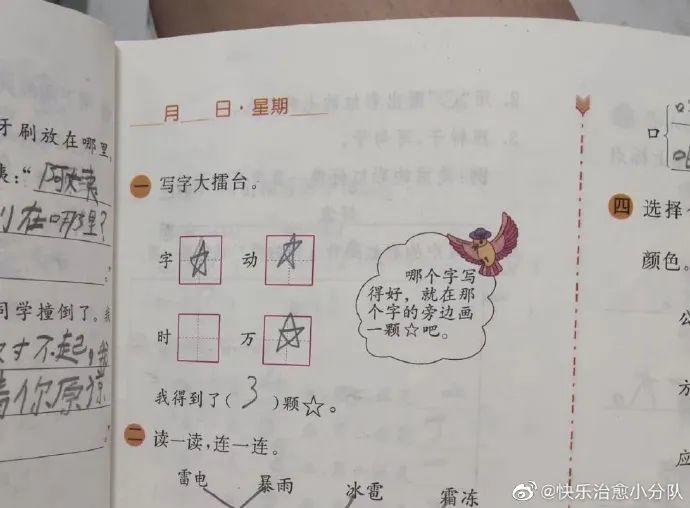 牙刷放在哪里,
:"阿姨
在哪里?
同学撞倒了。我
对不起,我
请你原谅
月 日·星期
一 写字大擂台。
字 动
时 万
哪个字写
得好,就在那
个字的旁边画
一颗☆吧。
我得到了( 3 )颗☆。
二 读一读,连一连。
雷电 暴雨 冰雹 霜冻
口
四 选择
颜色。
方
应
@快乐治愈小分队